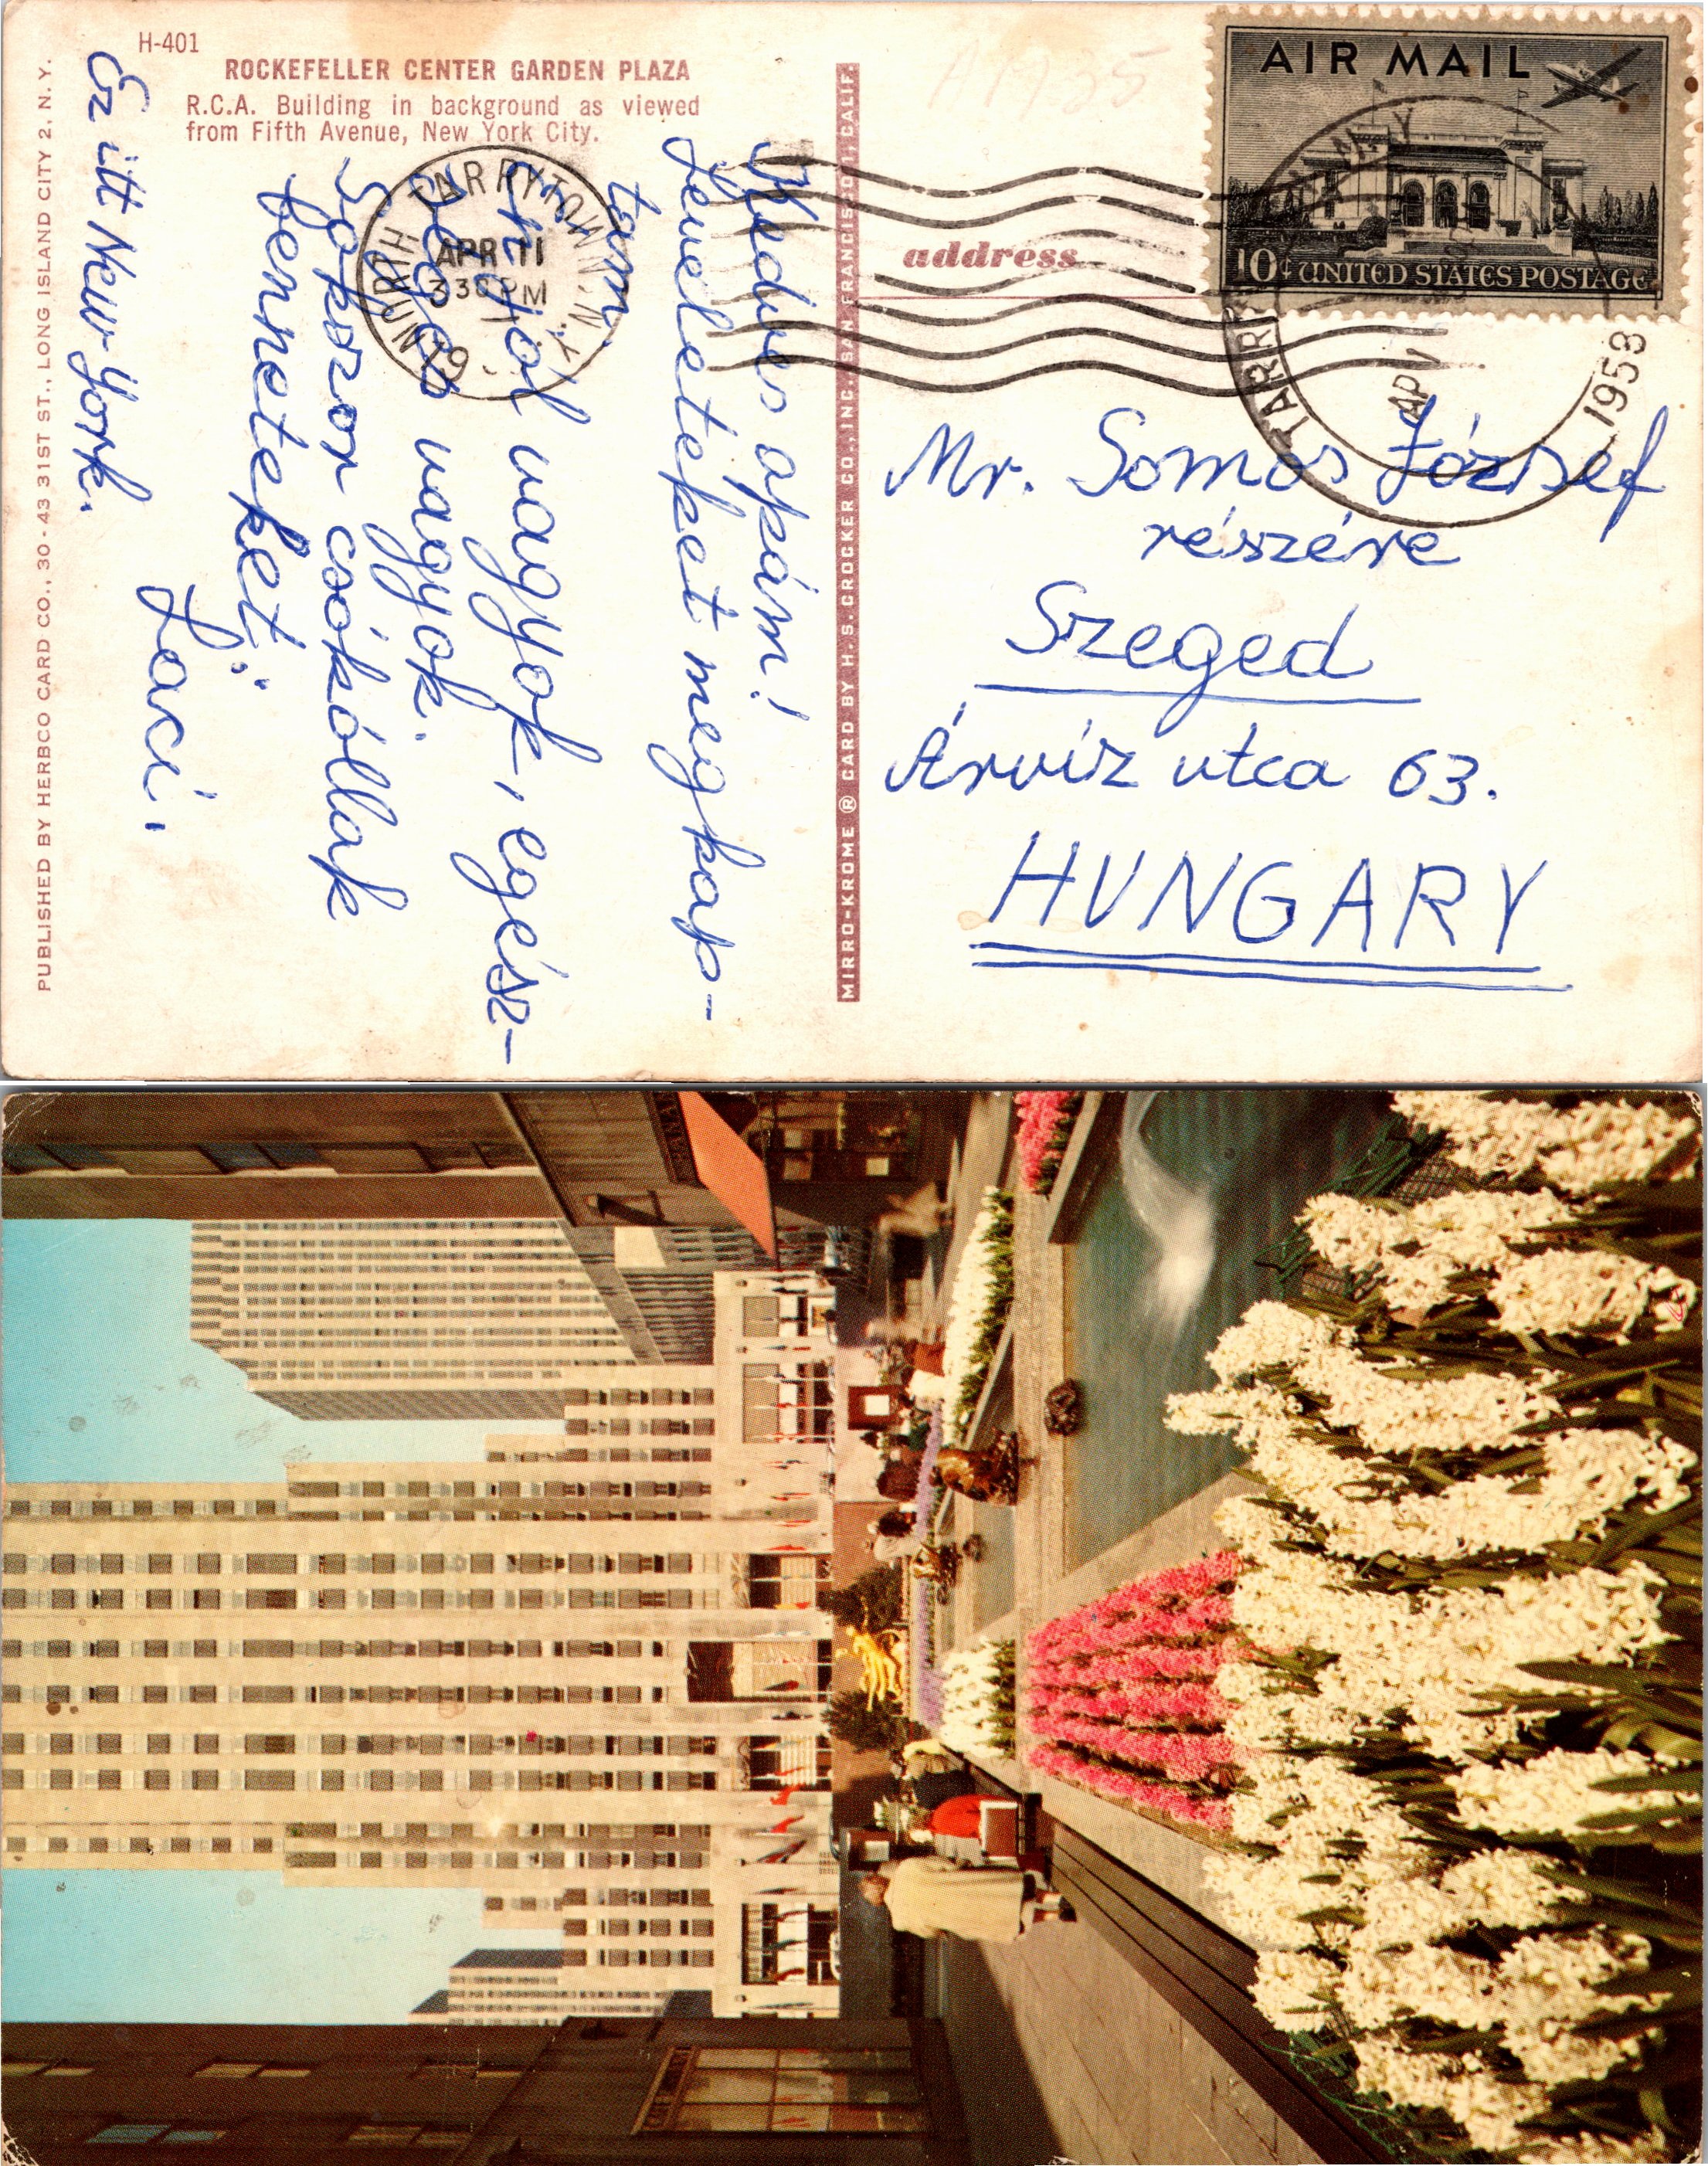 H-401
ROCKEFELLER CENTER GARDEN PLAZA
R.C.A. Building in background as viewed
from Fifth Avenue, New York City.
PUBLISHED BY HERBCO CARD CO., 30-43 31ST ST., LONG ISLAND CITY 2, N. Y.
MIRRO-KROME ® CARD BY H. S. CROCKER CO., INC. SAN FRANCISCO 1, CALIF.
address
AIR MAIL
10¢ UNITED STATES POSTAGE
NORTH TARRYTOWN, N.Y.
APR 11
3 30 PM
TARRY
1958
Kedves apám!
Leveleteket megkap-
tam.
én jól vagyok, egész-
séges vagyok.
Sokszor csókóllak
benneteket:
Laci.
Ez itt New-York.
Mr. Somos József
részére
Szeged
Árvíz utca 63.
HUNGARY